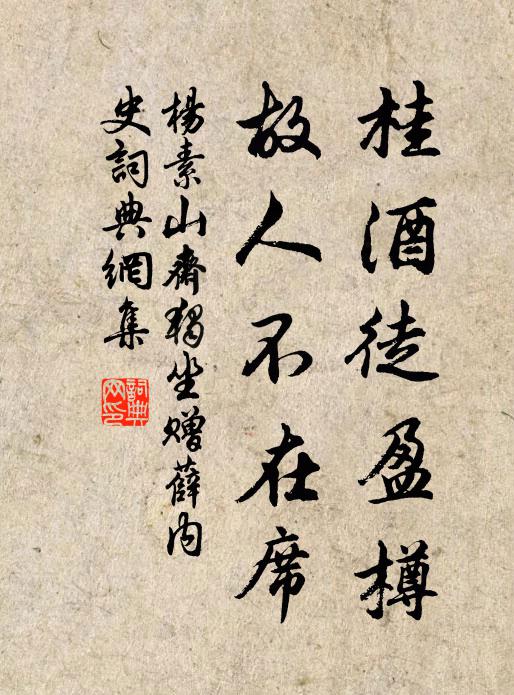 桂酒徒盈樽
故人不在席
楊素山齋獨坐贈薛內
史詞典網集
詞典
网印